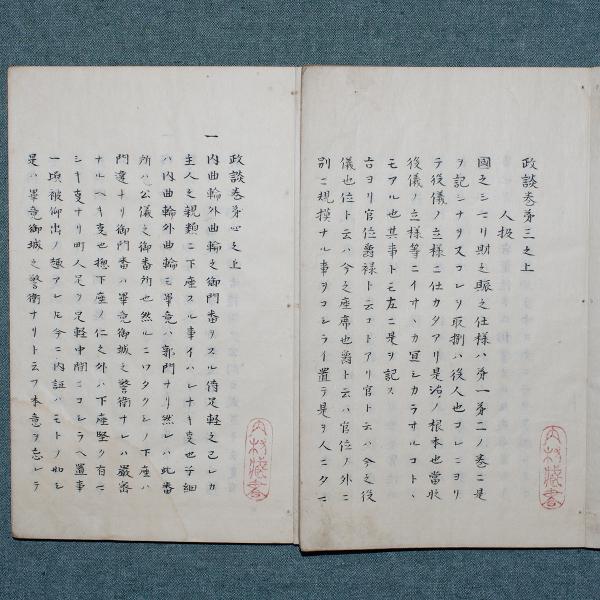 政談巻第三之上
人扱
國之シマリ財之賑之仕様ハ第一第二ノ巻ニ是
ヲ記シナリ又コレヲ取捌ハ役人也コレニヨリ
テ役儀ノ立様ニ仕カタアリ是治ノ根本也當時
役儀ノ立様等ニイサヽカ宜シカラサルコトヽ
モアル也其事トモ左ニ是ヲ記ス
古ヨリ官位爵禄ト云コトアリ官ト云ハ今之役
儀也位ト云ハ今之座席也爵ト云ハ官位ノ外ニ
別ニ規摸ナル事ヲコシライ置テ是ヲ人ニタマ
内村藏書
政談巻第四之上
一 内曲輪外曲輪之御門番ヲスル侍足軽之己レカ
主人之親類ニ下座スル事イハレナキ㕝也子細
ハ内曲輪外曲輪モ畢竟ハ郭門ナリ然レハ此番
所ハ公儀之御番所也然ルニワタクシノ下座ハ
門違ナリ御門番ハ畢竟御城之警衛ナレハ嚴密
ナルヘキ㕝也惣下座ノ仁之外ハ下座堅ク有マ
シキ㕝ナリ町人足リ足軽中間ニコシラヘ置事
一頃被仰出ノ趣アレ𪜈今ニ内証ハモトノ如シ
是ハ畢竟御城之警衛ナリト云フ本意ヲ忘レテ
内村藏書